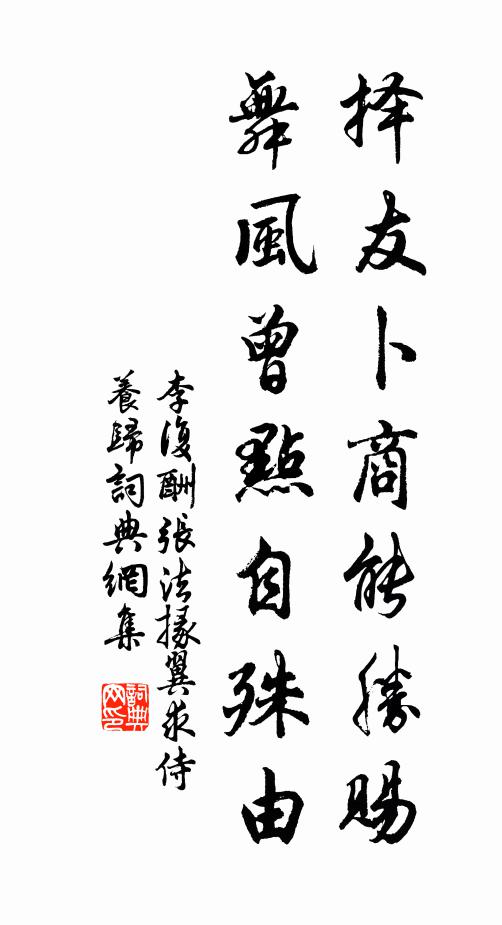 择友卜商能勝賜
舞風曾點自殊由
李復酬張法掾翼求侍
養歸詞典網集
詞典
网印